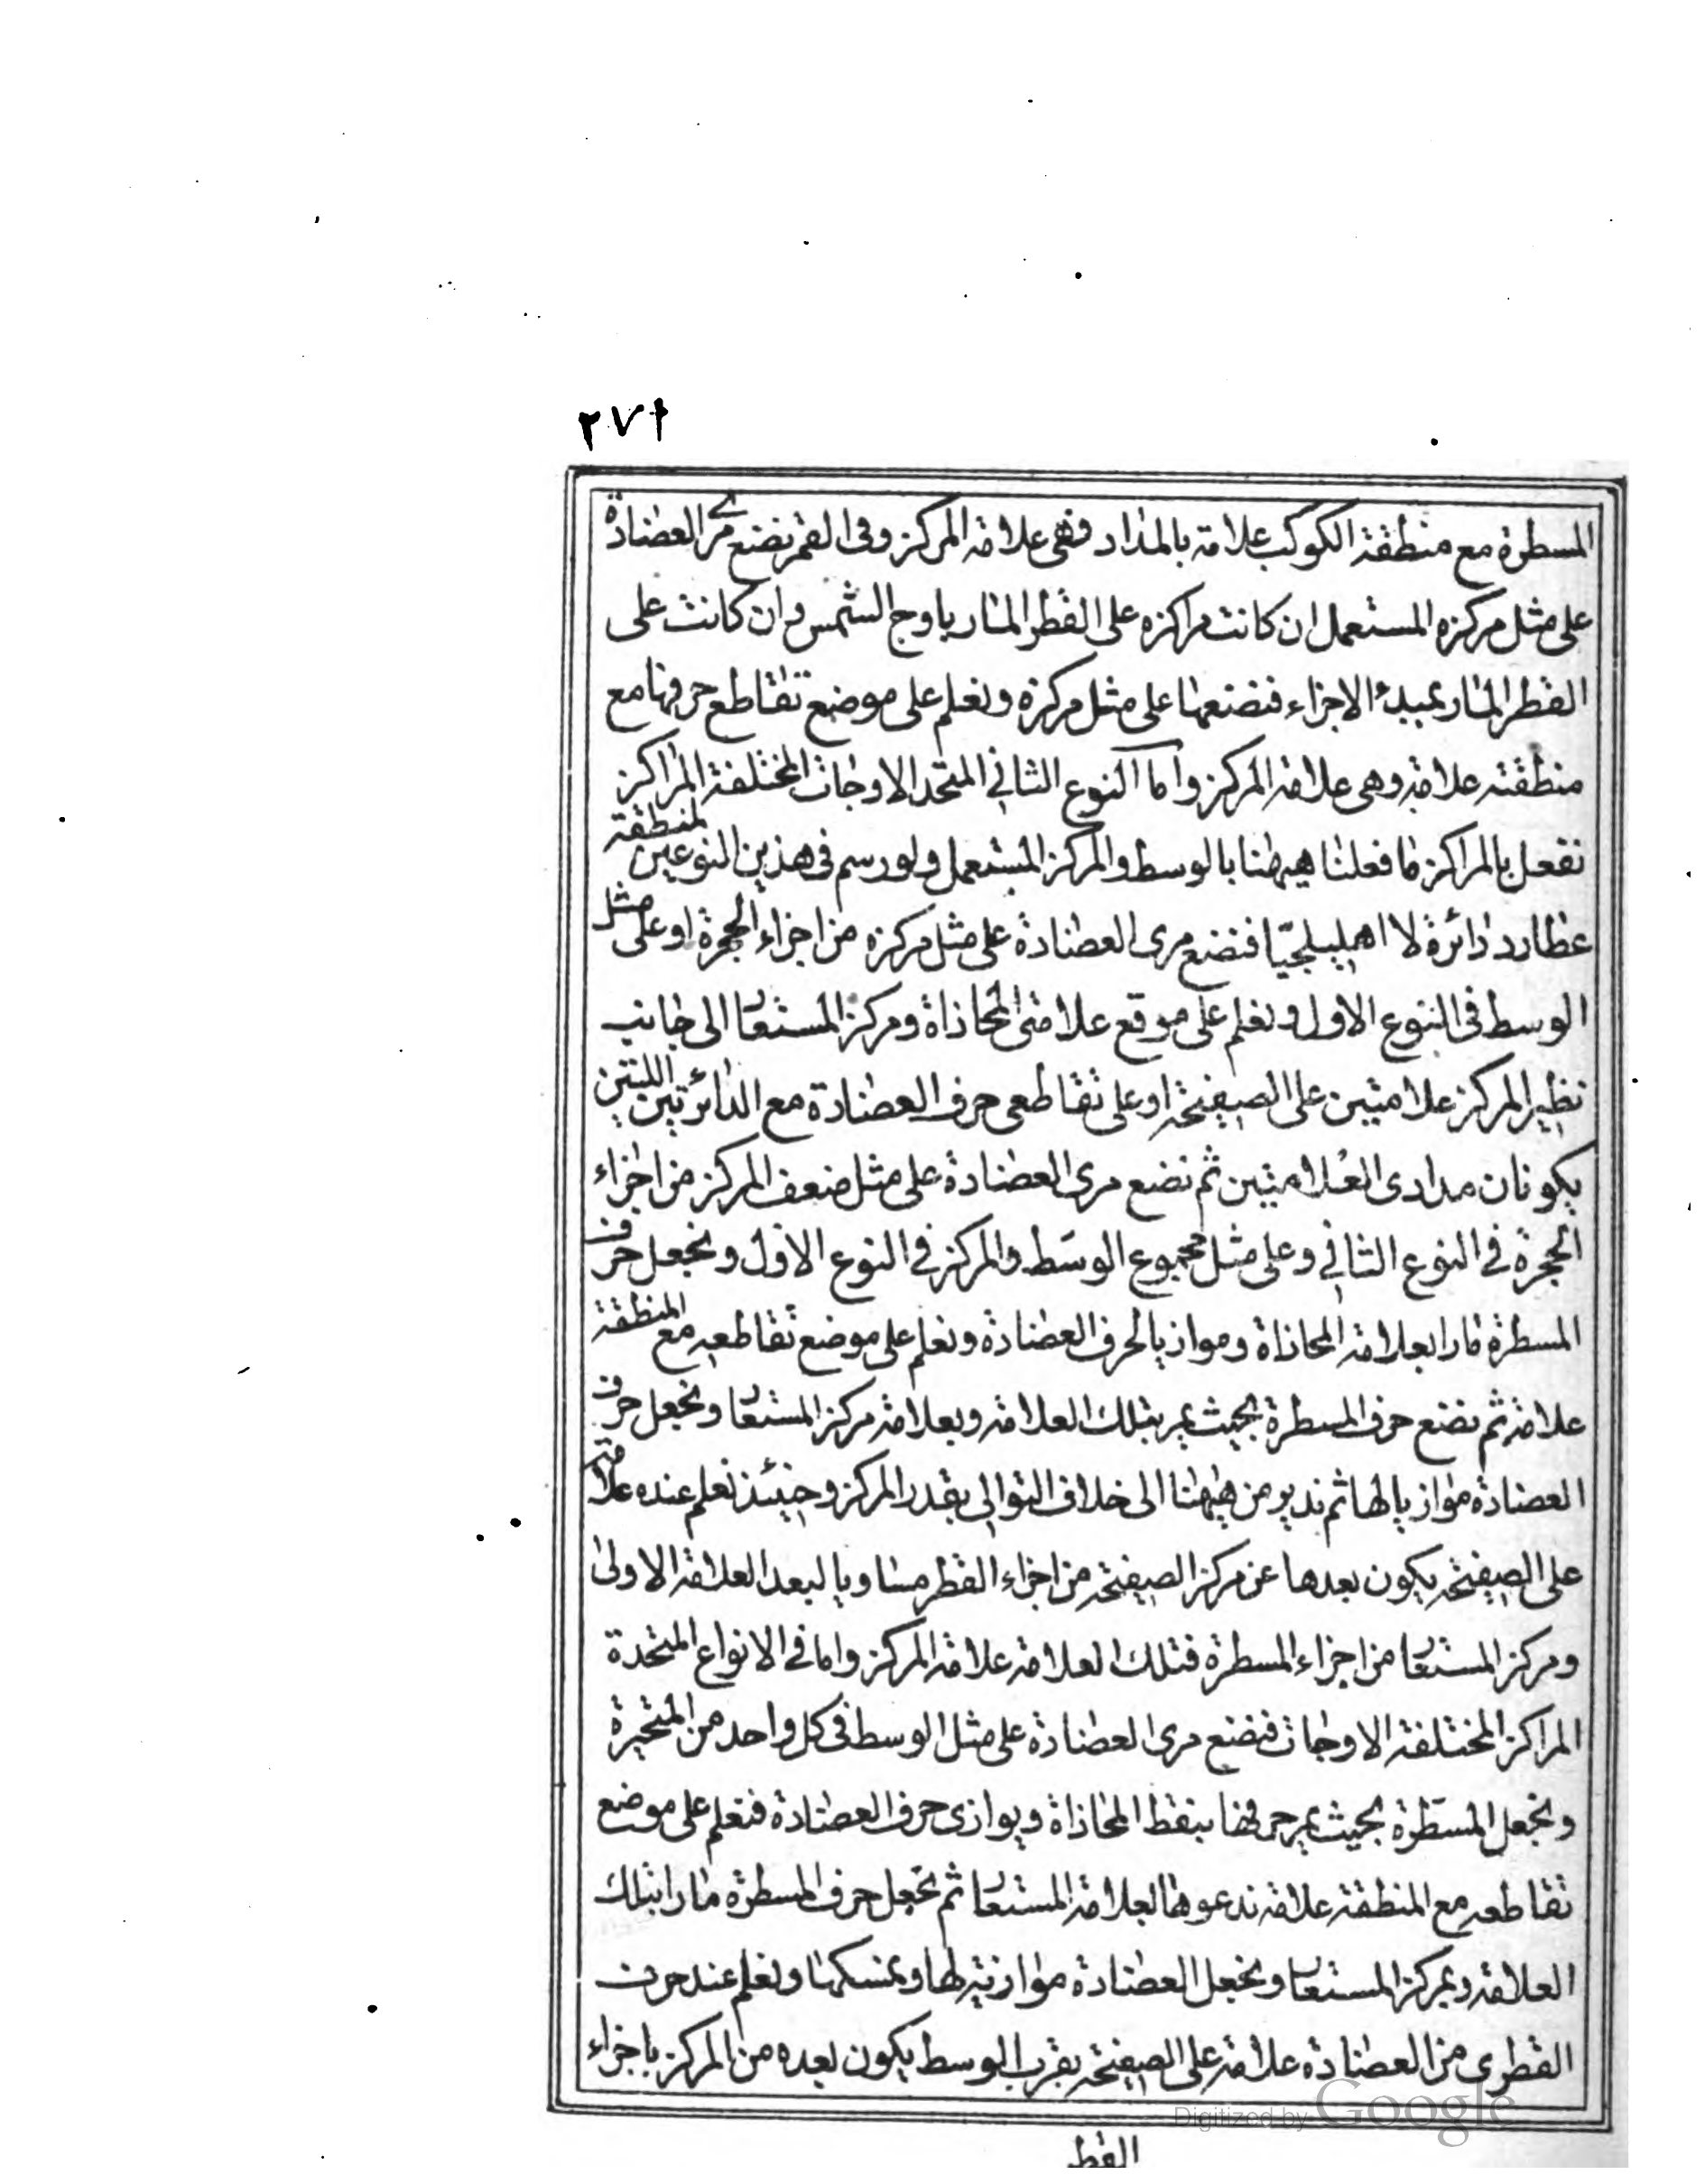 ٢٧١
المسطرة مع منطقة الكوكب علامة بالمداد فهى علامة المركز وفى القمر نضع مرى العضادة
على مثل مركزه المستعمل ان كانت مراكزه على القطر المار باوج الشمس وان كانت على
القطر المار بمبدء الاجزاء فنضعها على مثل مركزه ونعلم على موضع تقاطع حرفها مع
منطقته علامة وهى علامة المركز واما النوع الثانى المتحد الاوجات المختلفة المراكز
نفعل بالمراكز ما فعلنا هيهنا بالوسط والمركز المستعمل ولو رسم فى هذين النوعين لمنطقة
عطارد دائرة لا اهليلجيا فنضع مرى العضادة على مثل مركزه من اجزاء الحجرة او على مثل
الوسط فى النوع الاول ونعلم على موقع علامتى المحاذاة ومركز المستعار الى جانب
نظير المركز علامتين على الصفيحة او على تقاطعى حرف العضادة مع الدائرتين اللتين
يكونان مدارى العلامتين ثم نضع مرى العضادة على مثل ضعف المركز من اجزاء
الحجرة فى النوع الثانى وعلى مثل مجموع الوسط والمركز فى النوع الاول ونجعل حرف
المسطرة مارا بعلامة المحاذاة وموازيا لحرف العضادة ونعلم على موضع تقاطعه مع المنطقة
علامة ثم نضع حرف المسطرة بحيث يمر بتلك العلامة وبعلامة مركز المستعار ونجعل حرف
العضادة موازيا لها ثم ندير من هيهنا الى خلاف التوالى بقدر المركز وحينئذ نعلم عنده علامة
على الصفيحة يكون بعدها عن مركز الصفيحة من اجزاء القطر مساويا لبعد العلامة الاولى
ومركز المستعار من اجزاء المسطرة فتلك العلامة علامة المركز واما فى الانواع المتحدة
المراكز المختلفة الاوجات فنضع مرى العضادة على مثل الوسط فى كل واحد من المتحيرة
ونجعل المسطرة بحيث يمر حرفها بنقط المحاذاة ويوازى حرف العضادة فنعلم على موضع
تقاطعه مع المنطقة علامة ندعوها لعلامة المستعار ثم نجعل حرف المسطرة مارا بتلك
العلامة وبمركز المستعار ونجعل العضادة موازية لها ونمسكها ونعلم عند حرف
القطرى من العضادة علامة على الصفيحة بقرب الوسط يكون بعده من المركز باجزاء
القطر
Digitized by Google